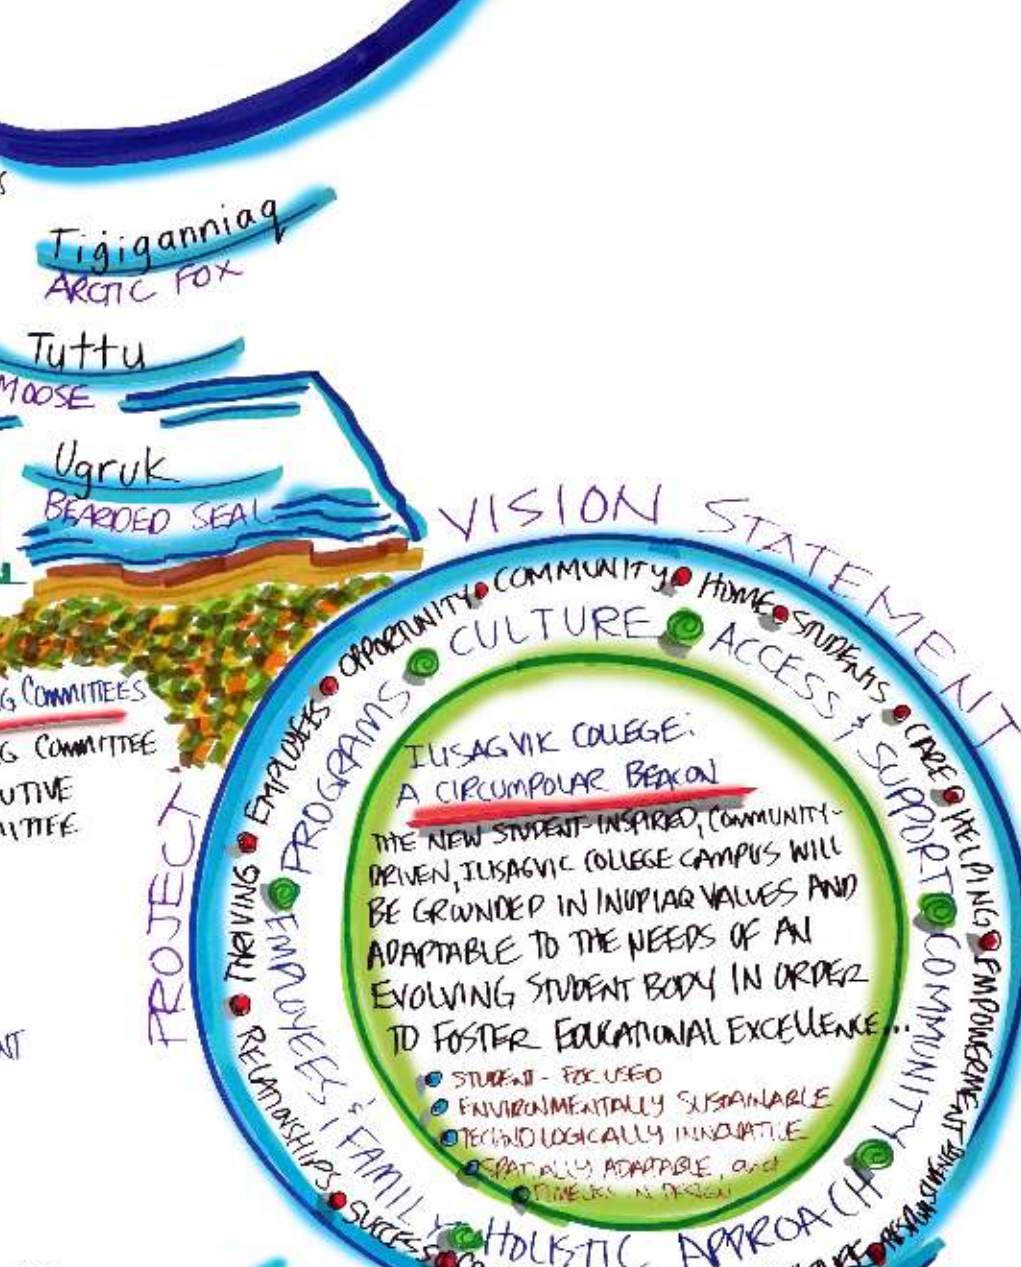 Tiġiganniaq
ARCTIC FOX
Tuttu
MOOSE
Ugruk
BEARDED SEAL
COMMITTEES
COMMITTEE
PROJECT VISION STATEMENT
RELATIONSHIPS THRIVING EMPLOYEES OPPORTUNITY COMMUNITY HOME STUDENTS CARE HELPING EMPOWERMENT
SUCCESS
EMPLOYEES & FAMILY
PROGRAMS
CULTURE
ACCESS & SUPPORT
COMMUNITY
HOLISTIC APPROACH
ILISAGVIK COLLEGE:
A CIRCUMPOLAR BEACON
THE NEW STUDENT-INSPIRED, COMMUNITY-
DRIVEN, ILISAGVIC COLLEGE CAMPUS WILL
BE GROUNDED IN INUPIAQ VALUES AND
ADAPTABLE TO THE NEEDS OF AN
EVOLVING STUDENT BODY IN ORDER
TO FOSTER EDUCATIONAL EXCELLENCE...
STUDENT-FOCUSED
ENVIRONMENTALLY SUSTAINABLE
TECHNOLOGICALLY INNOVATIVE
SPATIALLY ADAPTABLE, and
TIMELESS IN DESIGN